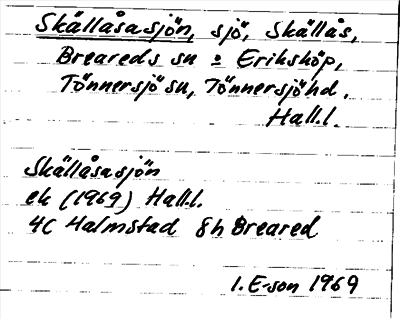 Skällåsasjön, sjö, Skällås,
Breareds sn o Eriksköp,
Tönnersjö sn, Tönnersjöhd.
Hall.l.
Skällåsasjön
ek (1969) Hall.l.
4C Halmstad 8h Breared
I. E-son 1969